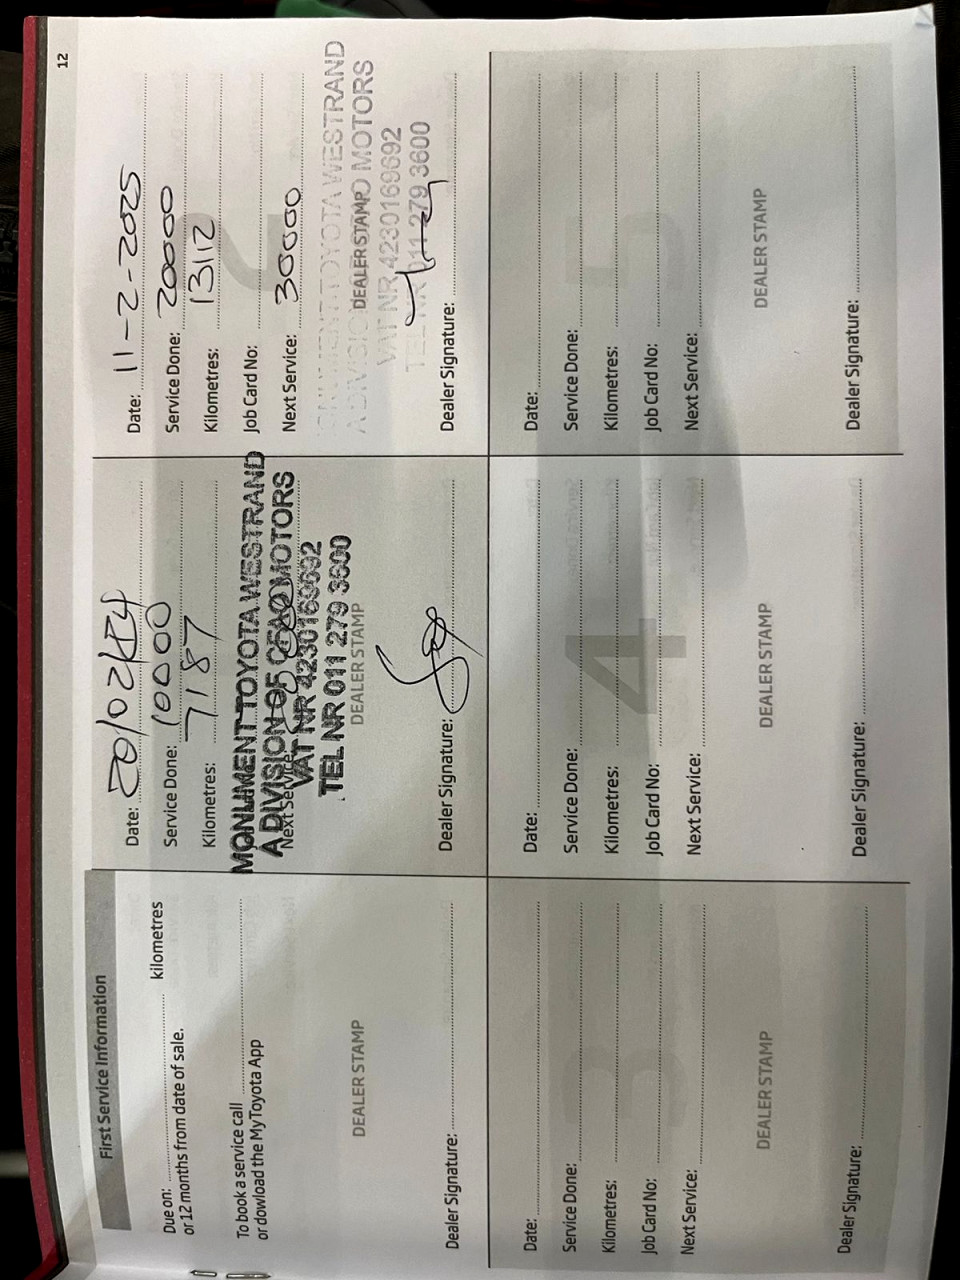 12
First Service Information
Due on: kilometres
or 12 months from date of sale.
To book a service call
or dowload the MyToyota App
DEALER STAMP
Dealer Signature:
Date: 20/02/
Service Done: 10000
Kilometres: 7187
MONUMENT TOYOTA WESTRAND
A DIVISION OF CFAO MOTORS
Next Service:
VAT NR 4230169692
TEL NR 011 279 3600
DEALER STAMP
Dealer Signature:
2
Date: 11-2-2025
Service Done: 20000
Kilometres: 13112
Job Card No:
Next Service: 30000
MONUMENT TOYOTA WESTRAND
A DIVISION MOTORS
DEALER STAMP
VAT NR 4230169692
TEL NR 011 279 3600
Dealer Signature:
3
Date:
Service Done:
Kilometres:
Job Card No:
Next Service:
DEALER STAMP
Dealer Signature:
4
Date:
Service Done:
Kilometres:
Job Card No:
Next Service:
DEALER STAMP
Dealer Signature:
5
Date:
Service Done:
Kilometres:
Job Card No:
Next Service:
DEALER STAMP
Dealer Signature: